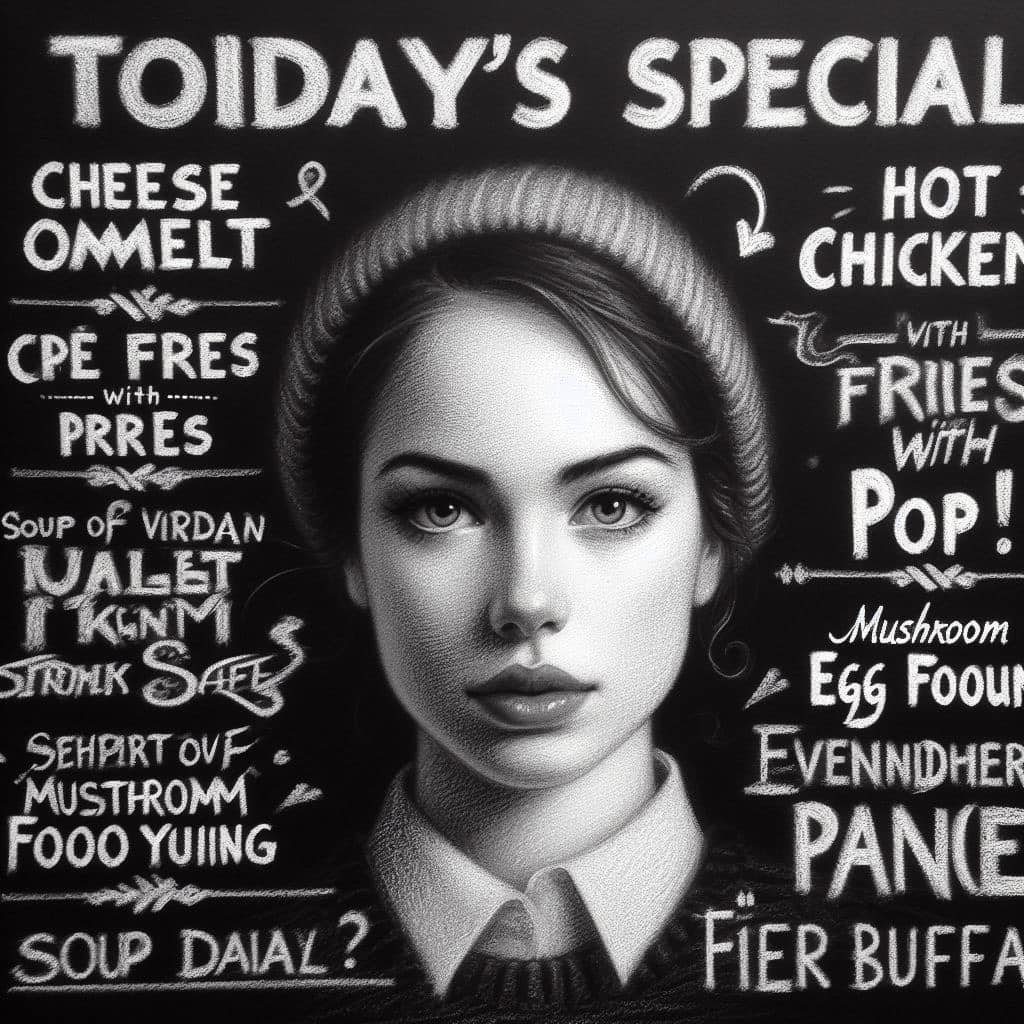 TOIDAY'S SPECIAL
CHEESE
OMMELT
CPE FRES
with
PRRES
SOUP OF VIRDAN
SEHPIRT OVF
MUSTHROMM
FOOO YUIING
SOUP DAIAL?
HOT
CHICKEN
VITH
FRIIES
WITH
POP!
MUSHROOM
EGG FOOUN
EVENNDHER
PANCE
FIER BUFFA